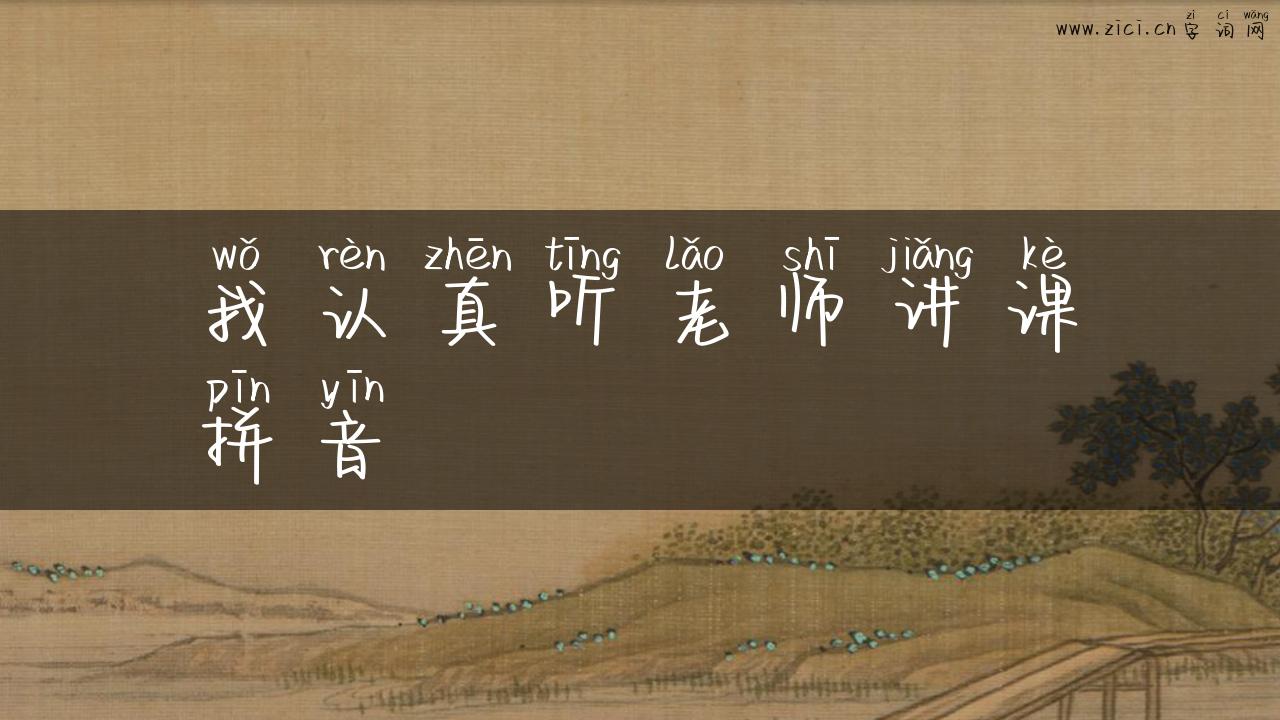 zì cí wǎng
www.zici.cn 字词网
wǒ rèn zhēn tīng lǎo shī jiǎng kè
我认真听老师讲课
pīn yīn
拼音